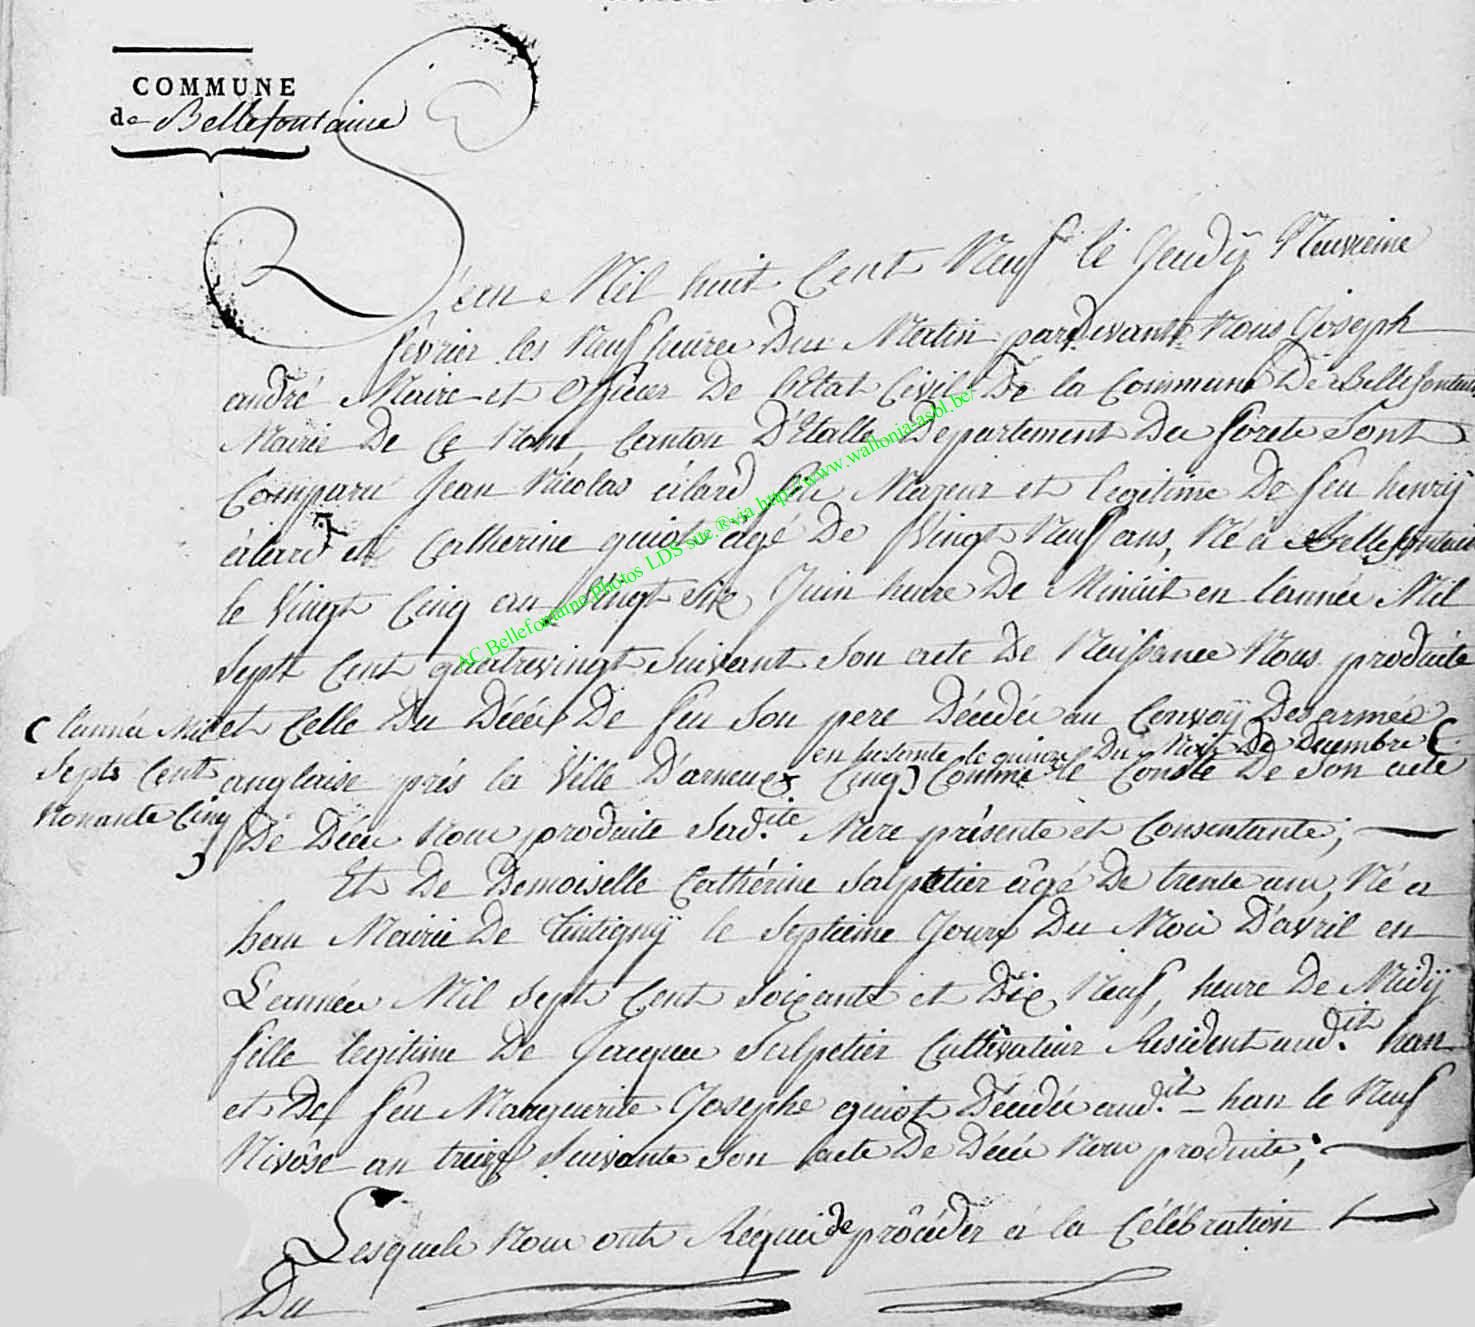 COMMUNE
de Bellefontaine
L'an Mil huit Cent Neuf le Jeudÿ Neuvieme
février les Neuf heures Du Matin pardevant Nous Joseph
andré Maire et Officier De l'Etat Civil De la Commune De Bellefontaine
Mairie De Ce Nom, Canton D'Etalle Departement Des forets Sont
Comparu Jean Nicolas élard fils Majeur et legitime De feu henrÿ
élard et Catherine quiot âgé De Vingt Neuf ans, Né a Bellefontaine
le Vingt Cinq au Vingt Six Juin heure De Minuit en l'année Mil
Sept Cent quatrevingt Suivant Son acte De Naissance Nous produite
et Celle Du Décès De feu Son pere Décédé au Convoÿ Des armée
( l'année Mil
Sept Cent
Nonante Cinq
)
en hesante le quinze Du Mois De Decembre (
anglaise prés la Ville D'arneux Cinq) Comme le Conste De Son acte
De Décès Nous produite Sad.ite Mere présente et Consentante;
Et De Demoiselle Cathérine Salpetier âgé De trente ans, Né a
han Mairie De Tintignÿ le Septieme Jour Du Mois D'avril en
L'année Mil Sept Cent Soixante et Dix Neuf, heure De Midÿ
fille legitime De Jacques Salpetier Cultivateur Résident aud.it han
et De feu Marguerite Josephe quiot Décédée aud.it han le Neuf
Nivôse an treize Suivante Son acte De Décès Nous produite;
Lesquels Nous ont Réquis de procéder à la Célébration
Du
AC Bellefontaine Photos LDS site.®via http://www.wallonia-asbl.be/